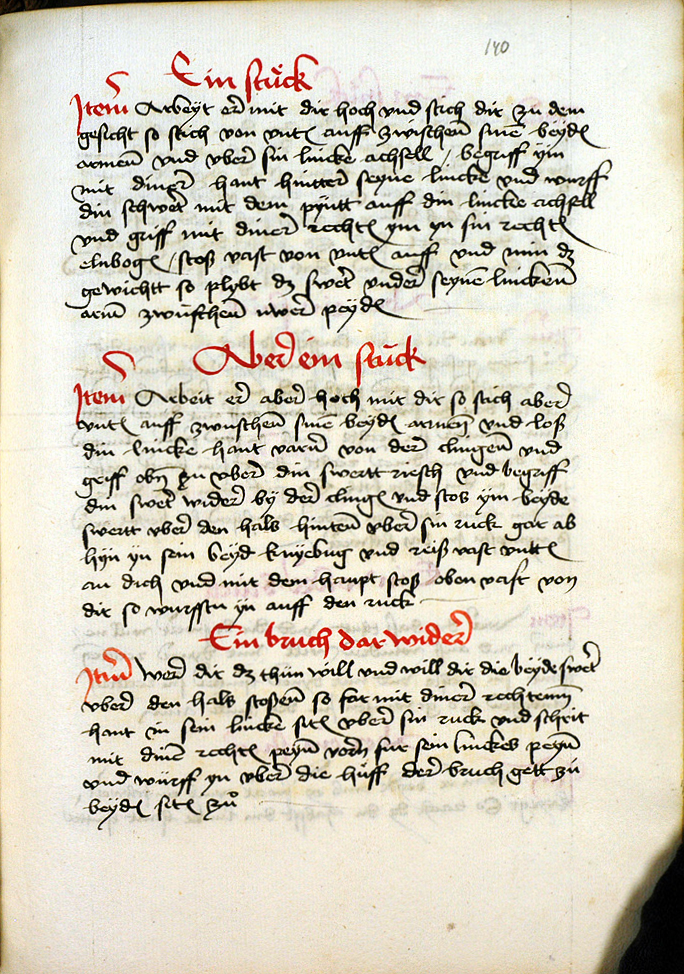 140
Ein stuck
Item Arbeyt er mit dir hoch vnd stich dir zu dem
gesicht so stich von vntē auff zwischenn sinē beydē
armenn vnd vber sin lincke achsell / begriff yin
mit diner hant hintter seyne lincke vnd wurff
din schwert mit dem pyntt auff din lincke achsell
vnd griff mit diner rechtē ym yn sin rechtē
elnbogē / stoß vast von vntē auff vnd nim dz
gewichtt so plybt dz swert vnder seynē linckenn
arm zwuschenn uwer peydē
Aber ein stuck
Item Arbeit er aber hoch mit dir so stich aber
vntē auff zwuschenn sinē beydē armen vnd loß
din lincke hant varn von der clingenn vnd
griff obn zu vber din swertt riesch vnd begriff
din swert wider by der clingē vnd stos ym beyde
swertt vber den hals hintenn vber sin ruck gar ab
hyn yn sein beyd knyebug vnd reiß vast vnttē
an dich vnd mit dem haupt stoß oben vast von
dir so wurffstu yn auff den ruck
Ein bruch dar wider
Item wer dir dz thun will vnd will dir die beyde swert
vber den hals stoßenn so far mit diner rechtenn
hant in sein lincke sitē vber sin ruck vnd schrit
mit diner rechtē peyn vorn fur sein linckes peyn
vnd wurff yn vber die huff der bruch gett zu
beydē sitē zu